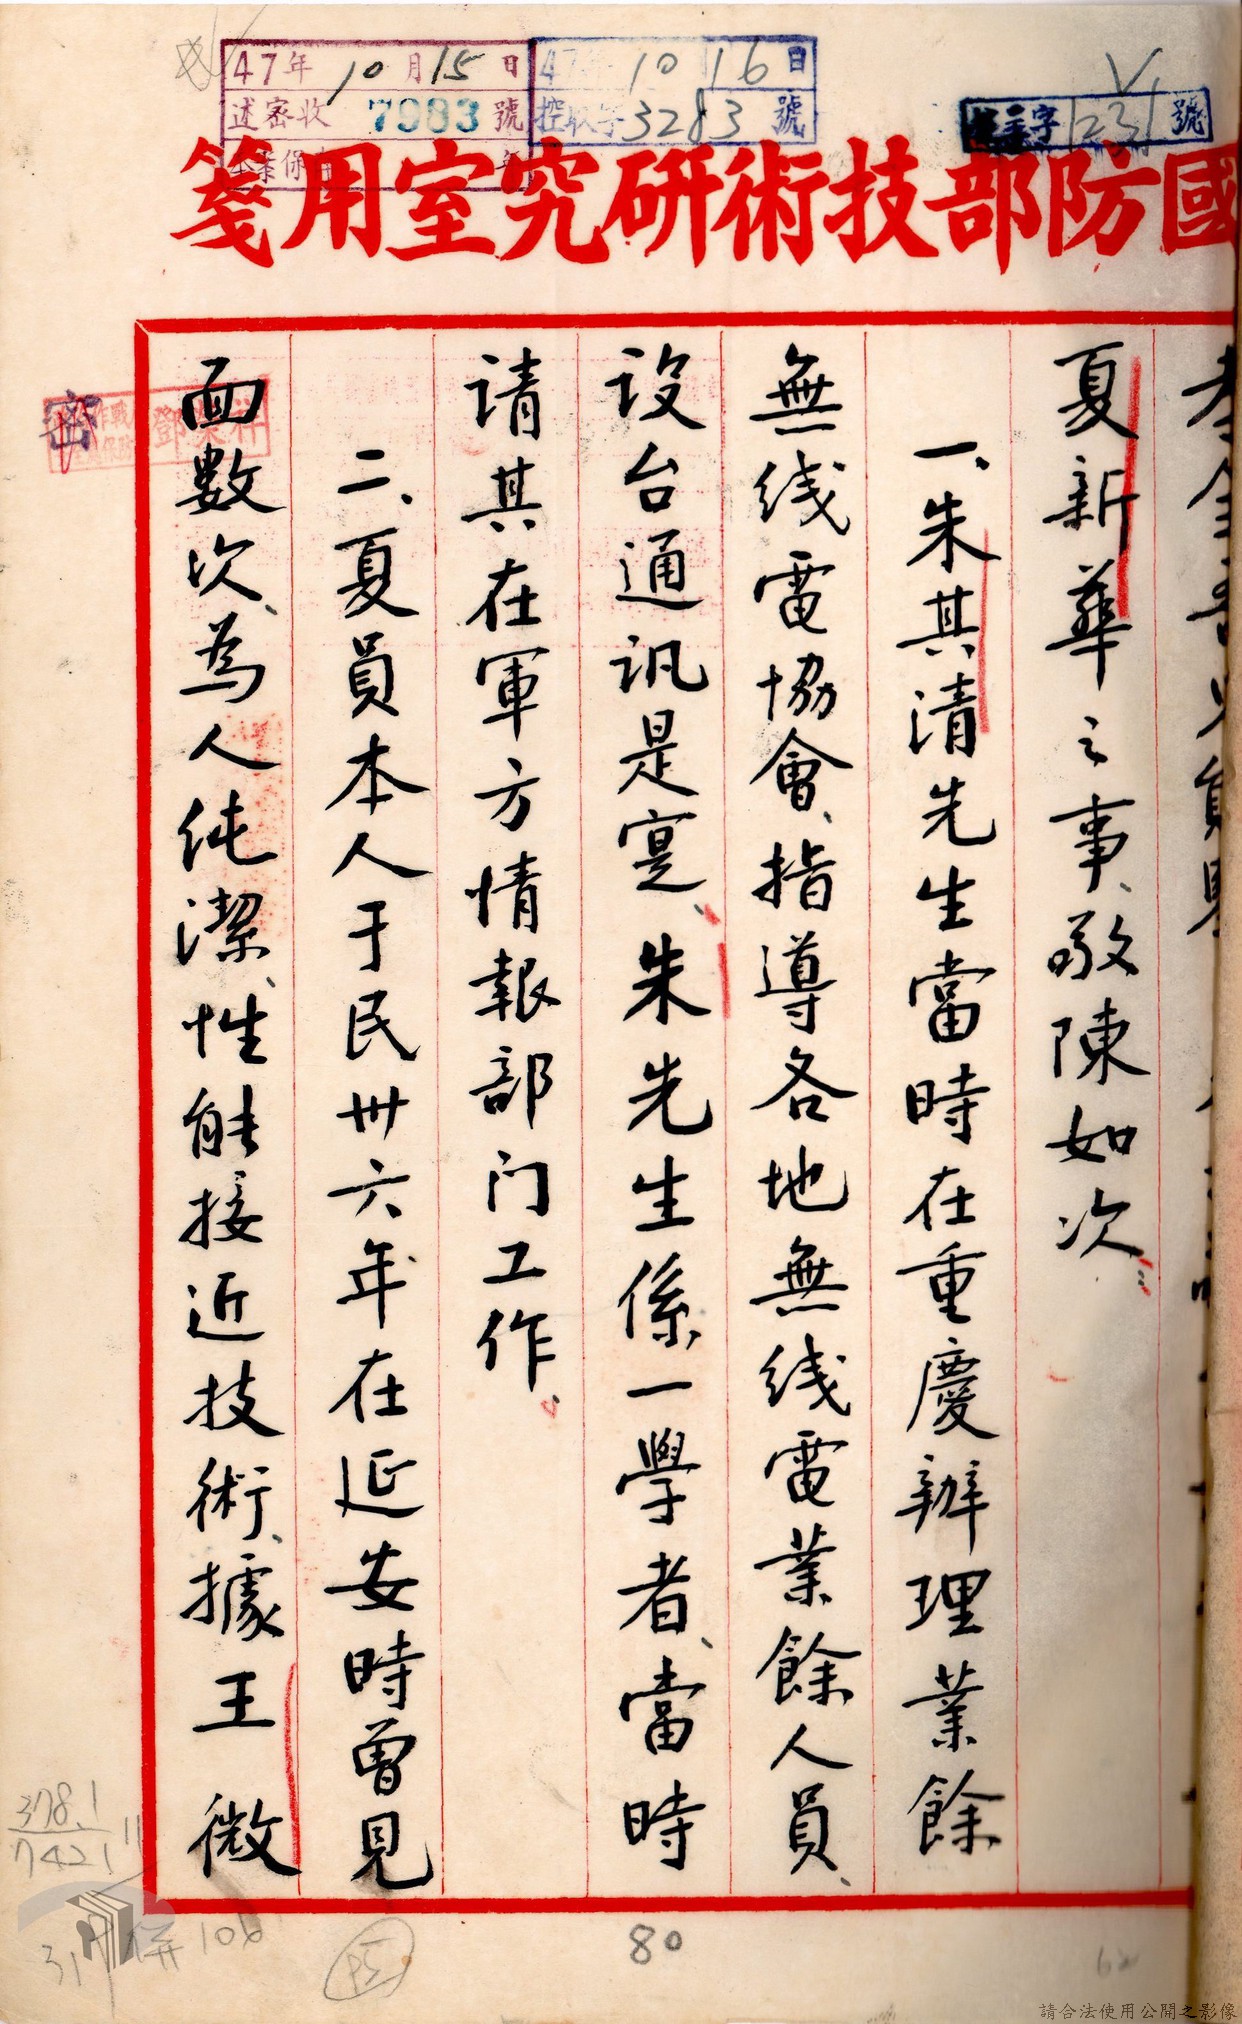 47年10月15日
述密收7983號
47年10 16日
控收字3283號
主字1231號
國防部技術研究室用箋
夏新華之事、敬陳如次：
一、朱其清先生當時在重慶辦理業餘
無线電協會、指導各地無线電業餘人員、
设台通讯是寔、朱先生係一學者、當時
请其在軍方情報部门工作、
二、夏員本人于民卅六年在延安時曾見
面數次、為人純潔、性能接近技術、據王微
密
鄧榮祥
3781
7421
31 併106
80
請合法使用公開之影像